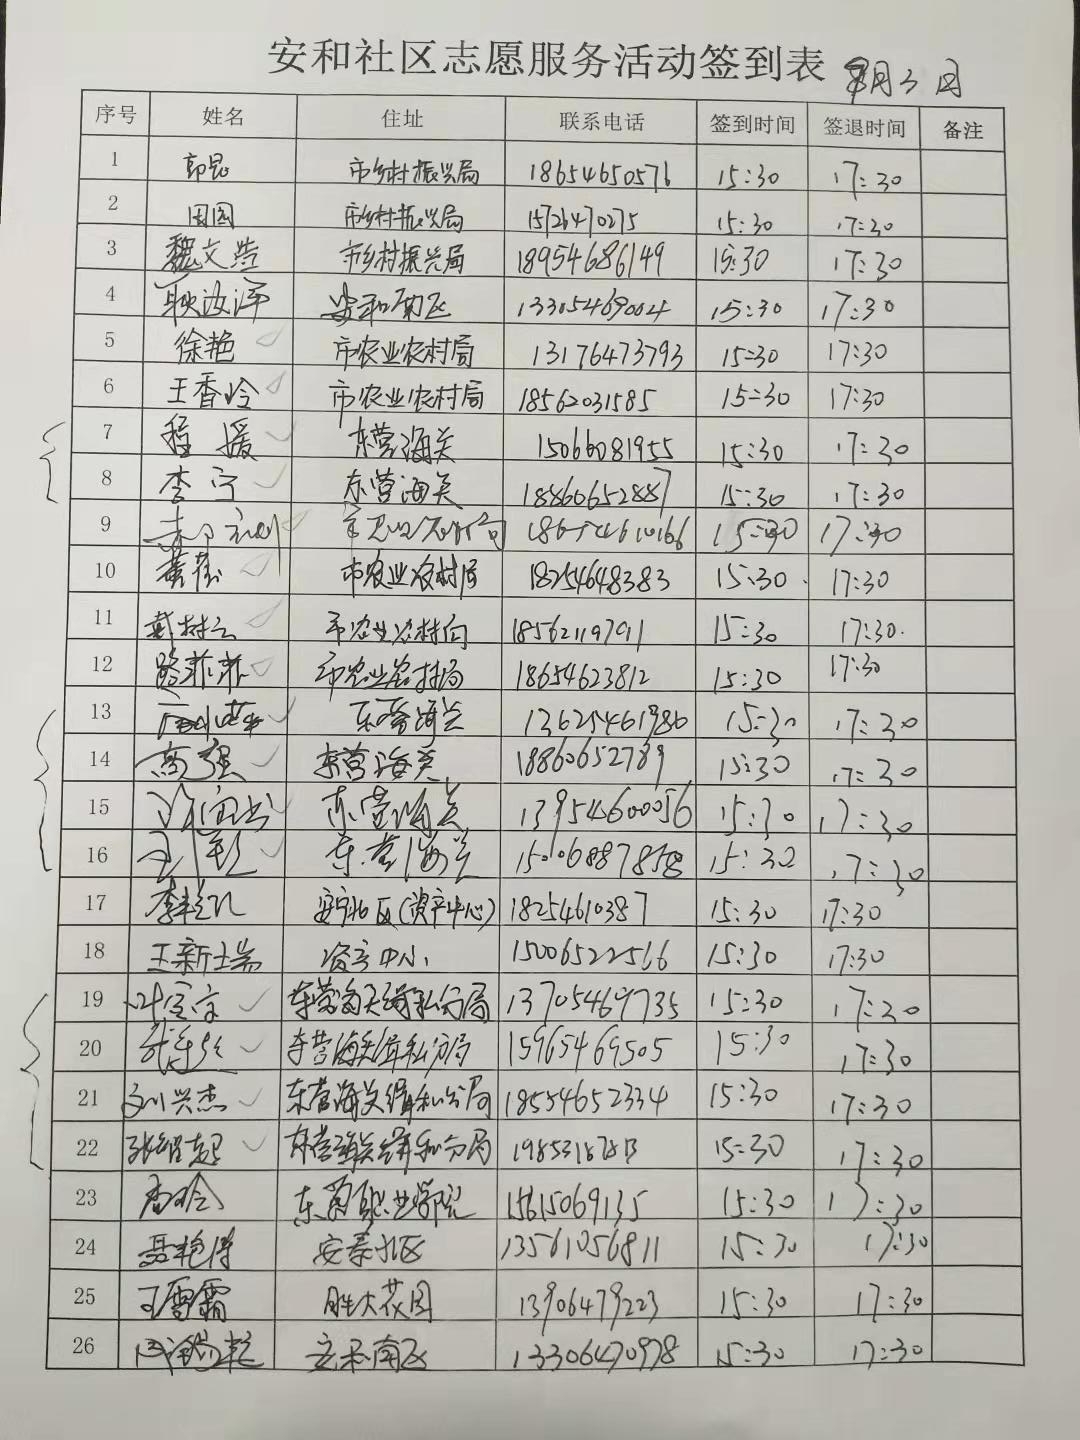 安和社区志愿服务活动签到表 月3日
序号 姓名 住址 联系电话 签到时间 签退时间 备注
1 郭昆 市乡村振兴局 18654650576 15:30 17:30
2 周围 市乡村振兴局 15726470275 15:30 17:30
3 魏文浩 市乡村振兴局 18954686149 15:30 17:30
4 耿汝洋 安和南区 13305469004 15:30 17:30
5 徐艳 市农业农村局 13176473793 15:30 17:30
6 王香吟 市农业农村局 18562031585 15:30 17:30
7 程媛 东营海关 15066081955 15:30 17:30
8 李宁 东营海关 18860652887 15:30 17:30
9 15:30 17:30
10 市农业农村局 18254648383 15:30 17:30
11 市农业农村局 15:30 17:30
12 路菲菲 市农业农村局 18654623812 15:30 17:30
13 东营海关 13625461980 15:30 17:30
14 高强 东营海关 18860652789 15:30 17:30
15 东营海关 13954600056 15:30 17:30
16 东营海关 15:30 17:30
17 (资产中心) 18254610387 15:30 17:30
18 王新瑞 资产中心 15006522566 15:30 17:30
19 东营海关缉私分局 13705469735 15:30 17:30
20 东营海关缉私分局 15965469505 15:30 17:30
21 刘兴杰 东营海关缉私分局 18554652334 15:30 17:30
22 东营海关缉私分局 15:30 17:30
23 东营职业学院 15615069135 15:30 17:30
24 聂艳 安泰北区 13561056811 15:30 17:30
25 王雪霜 胜大花园 13906479223 15:30 17:30
26 安和南区 13306470978 15:30 17:30